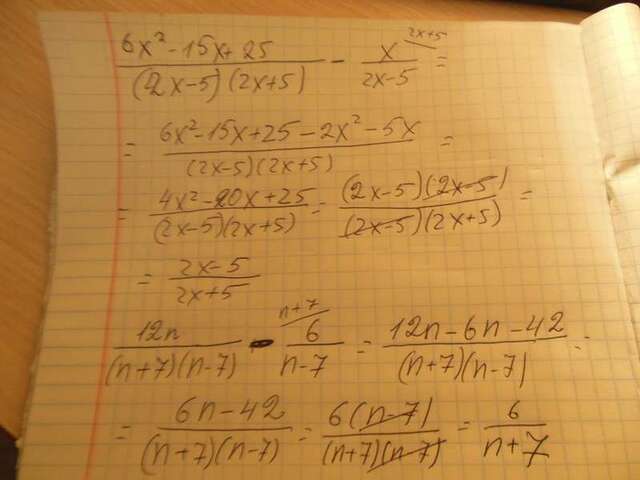 (6x² - 15x + 25)/((2x-5)(2x+5)) - x/(2x-5) 2x+5 =
= (6x² - 15x + 25 - 2x² - 5x)/((2x-5)(2x+5)) =
= (4x² - 20x + 25)/((2x-5)(2x+5)) = ((2x-5)(2x-5))/((2x-5)(2x+5)) =
= (2x-5)/(2x+5)
12n/((n+7)(n-7)) - 6/(n-7) n+7 = (12n - 6n - 42)/((n+7)(n-7)) =
= (6n - 42)/((n+7)(n-7)) = 6(n-7)/((n+7)(n-7)) = 6/(n+7)